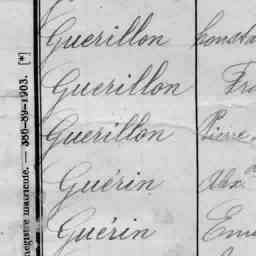 Guerillon Consta
Guerillon Fra
Guerillon Pierre
Guérin Alex
Guérin Emi
Registre matricule. — 386-89-1903. [*]